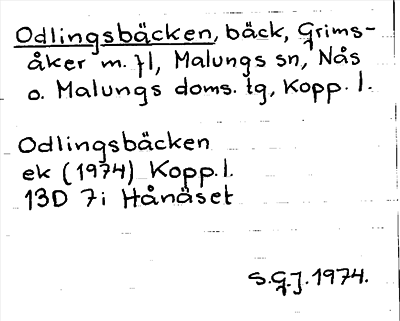 Odlingsbäcken, bäck, Grims-
åker m. fl, Malungs sn, Nås
o. Malungs doms. tg, Kopp. l.
Odlingsbäcken
ek (1974) Kopp. l.
13D 7i Hånäset
S.G.J. 1974.